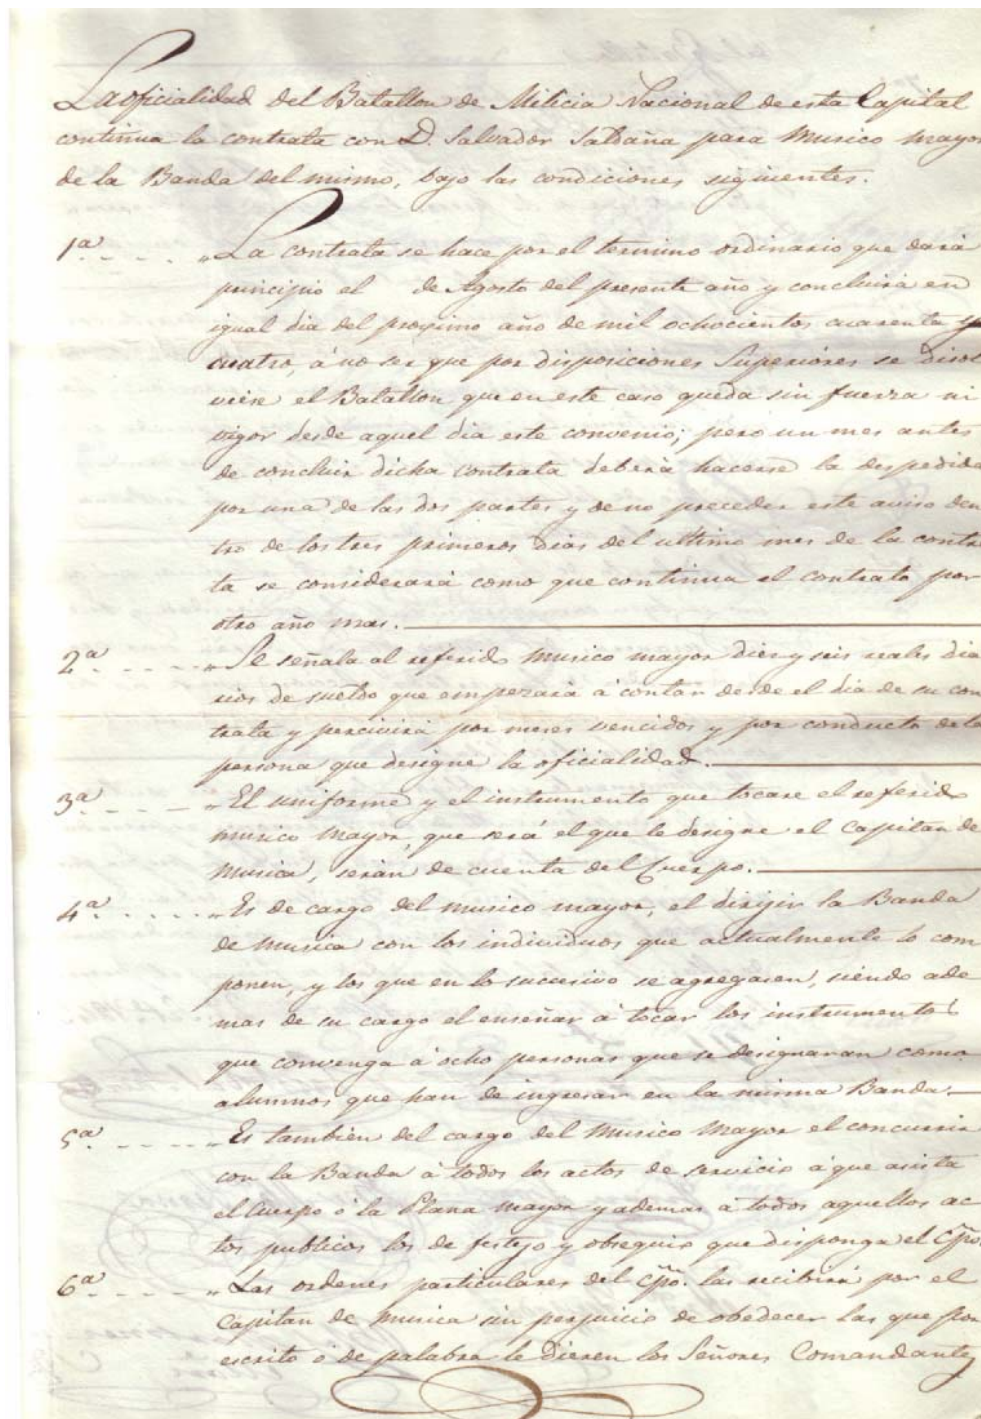 La oficialidad del Batallon de Milicia Nacional de esta Capital
continua la contrata con D. Salvador Saldaña para Musico mayor
de la Banda del mismo, bajo las condiciones siguientes.
1ª - - - - „La contrata se hace por el termino ordinario que dará
principio el de Agosto del presente año y concluirá en
igual dia del proximo año de mil ochocientos cuarenta y
cuatro, á no ser que por disposiciones Superiores se disol
viese el Batallon que en este caso queda sin fuerza ni
vigor desde aquel dia este convenio; pero un mes antes
de concluir dicha contrata deberá hacerse la despedida
por una de las dos partes y de no preceder este aviso den
tro de los tres primeros dias del ultimo mes de la contra
ta se considerará como que continua el contrato por
otro año mas.
2ª - - - - „Se señala al referido musico mayor diez y seis reales dia
rios de sueldo que empezará á contar desde el dia de su con
trata y percivirá por meses vencidos y por conducto de la
persona que designe la oficialidad.
3ª - - - - „El uniforme y el instrumento que tocare el referido
musico mayor, que será el que le designe el Capitan de
Musica, serán de cuenta del Cuerpo.
4ª - - - - „Es de cargo del musico mayor, el dirijir la Banda
de musica con los individuos que actualmente lo com
ponen, y los que en lo succesivo se agregasen, siendo ade
mas de su cargo el enseñar á tocar los instrumentos
que convenga á ocho personas que se designaran como
alumnos que han de ingresar en la misma Banda.
5ª - - - - „Es tambien del cargo del Musico Mayor el concurrir
con la Banda á todos los actos de servicio á que asista
el Cuerpo ó la Plana mayor y ademas á todos aquellos ac
tos publicos los de festejo y obsequio que disponga el Cpo.
6ª - - - - „Las ordenes particulares del Cpo. las recibirá por el
Capitan de musica sin perjuicio de obedecer las que por
escrito ó de palabra le dieren los Señores Comandantes